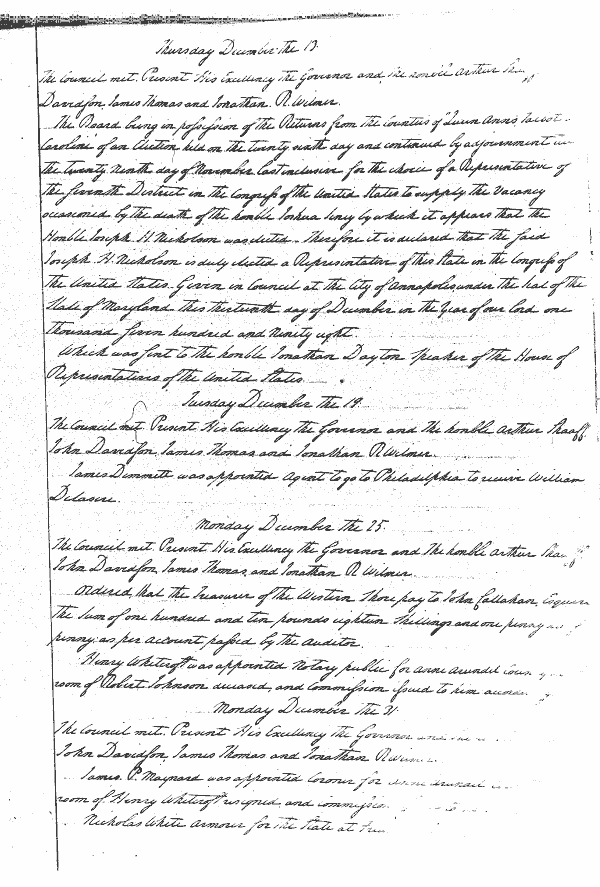 Thursday December the 13.
The Council met. Present His Excellency the Governor and the honble Arthur
Davidson, James Thomas and Jonathan R Wilmer.
The Board being in possession of the Returns from the Counties of Queen Anne's Talbot
Caroline of an Election held on the twenty sixth day and continued by adjournment
the twenty Ninth day of November last inclusive for the choice of a Representative of
the Seventh District in the Congress of the United States to supply the Vacancy
occasioned by the death of the honble Joshua Seney by which it appears that the
Honble Joseph H. Nicholson was elected. Therefore it is declared that the said
Joseph H. Nicholson is duly elected a Representative of this State in the Congress of
the United States. Given in Council at the City of Annapolis under the seal of the
State of Maryland this thirteenth day of December in the Year of our Lord one
thousand seven hundred and Ninety eight.
Which was sent to the honble Jonathan Dayton Speaker of the House of
Representatives of the United States.
Tuesday December the 19
The Council met Present His Excellency the Governor and the honble Arthur Shaaff
John Davidson, James Thomas and Jonathan R Wilmer.
James Dimmett was appointed Agent to go to Philadelphia to receive William
Delasere.
Monday December the 25.
The Council met. Present His Excellency the Governor and The honble Arthur Shaaff
John Davidson, James Thomas, and Jonathan R Wilmer.
Ordered that the Treasurer of the Western Shore pay to John Callahan, Esquire
the sum of one hundred and ten pounds eighteen Shillings and one penny
penny as per Account passed by the Auditor.
Henry Whitcroft was appointed Notary public for Anne Arundel County
room of Robert Johnson deceased, and Commission issued to him
Monday December the 31
The Council met. Present His Excellency the Governor and the
John Davidson, James Thomas and Jonathan R Wilmer.
James P. Maynard was appointed Coroner for Anne Arundel
room of Henry Whitcroft resigned and commission to
Nicholas White Armour for the State at